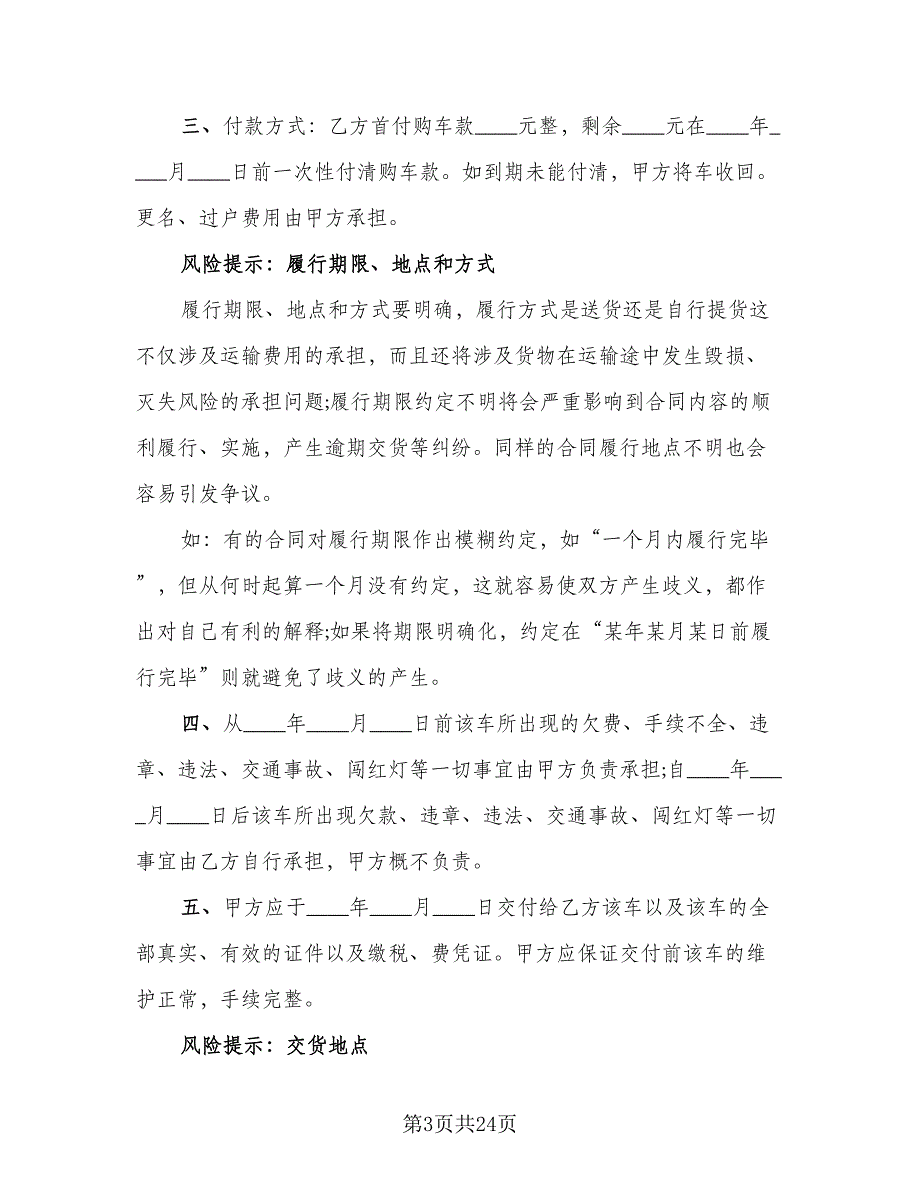 三、付款方式：乙方首付购车款____元整，剩余____元在____年_
___月____日前一次性付清购车款。如到期未能付清，甲方将车收回。
更名、过户费用由甲方承担。
风险提示：履行期限、地点和方式
履行期限、地点和方式要明确，履行方式是送货还是自行提货这
不仅涉及运输费用的承担，而且还将涉及货物在运输途中发生毁损、
灭失风险的承担问题;履行期限约定不明将会严重影响到合同内容的顺
利履行、实施，产生逾期交货等纠纷。同样的合同履行地点不明也会
容易引发争议。
如：有的合同对履行期限作出模糊约定，如“一个月内履行完毕
”，但从何时起算一个月没有约定，这就容易使双方产生歧义，都作
出对自己有利的解释;如果将期限明确化，约定在“某年某月某日前履
行完毕”则就避免了歧义的产生。
四、从____年____月____日前该车所出现的欠费、手续不全、违
章、违法、交通事故、闯红灯等一切事宜由甲方负责承担;自____年___
_月____日后该车所出现欠款、违章、违法、交通事故、闯红灯等一切
事宜由乙方自行承担，甲方概不负责。
五、甲方应于____年____月____日交付给乙方该车以及该车的全
部真实、有效的证件以及缴税、费凭证。甲方应保证交付前该车的维
护正常，手续完整。
风险提示：交货地点
第3页共24页